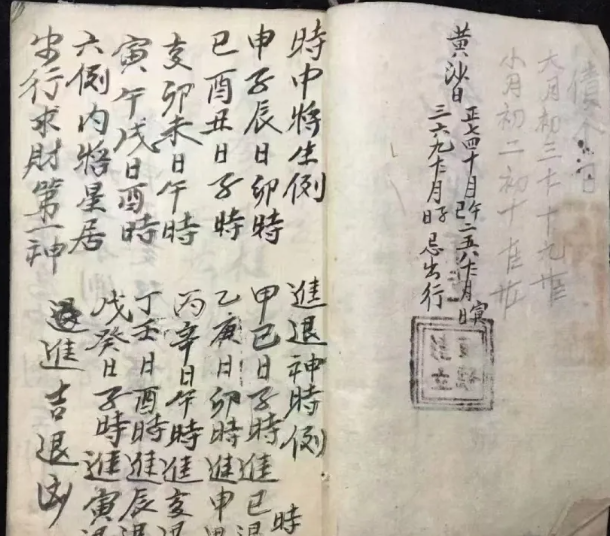 大月初三
小月初二初十
黄沙日
正七四十月午日二五八十一月寅日
三六九十二月子日忌出行
時中將生例
申子辰日卯時
巳酉丑日子時
亥卯未日午時
寅午戌日酉時
六例内將星居
出行求財第一神
進退神時例
甲巳日子時進巳退時
乙庚日卯時進申
丙辛日午時進亥退
丁壬日酉時進辰退
戊癸日子時進寅退
進吉退凶